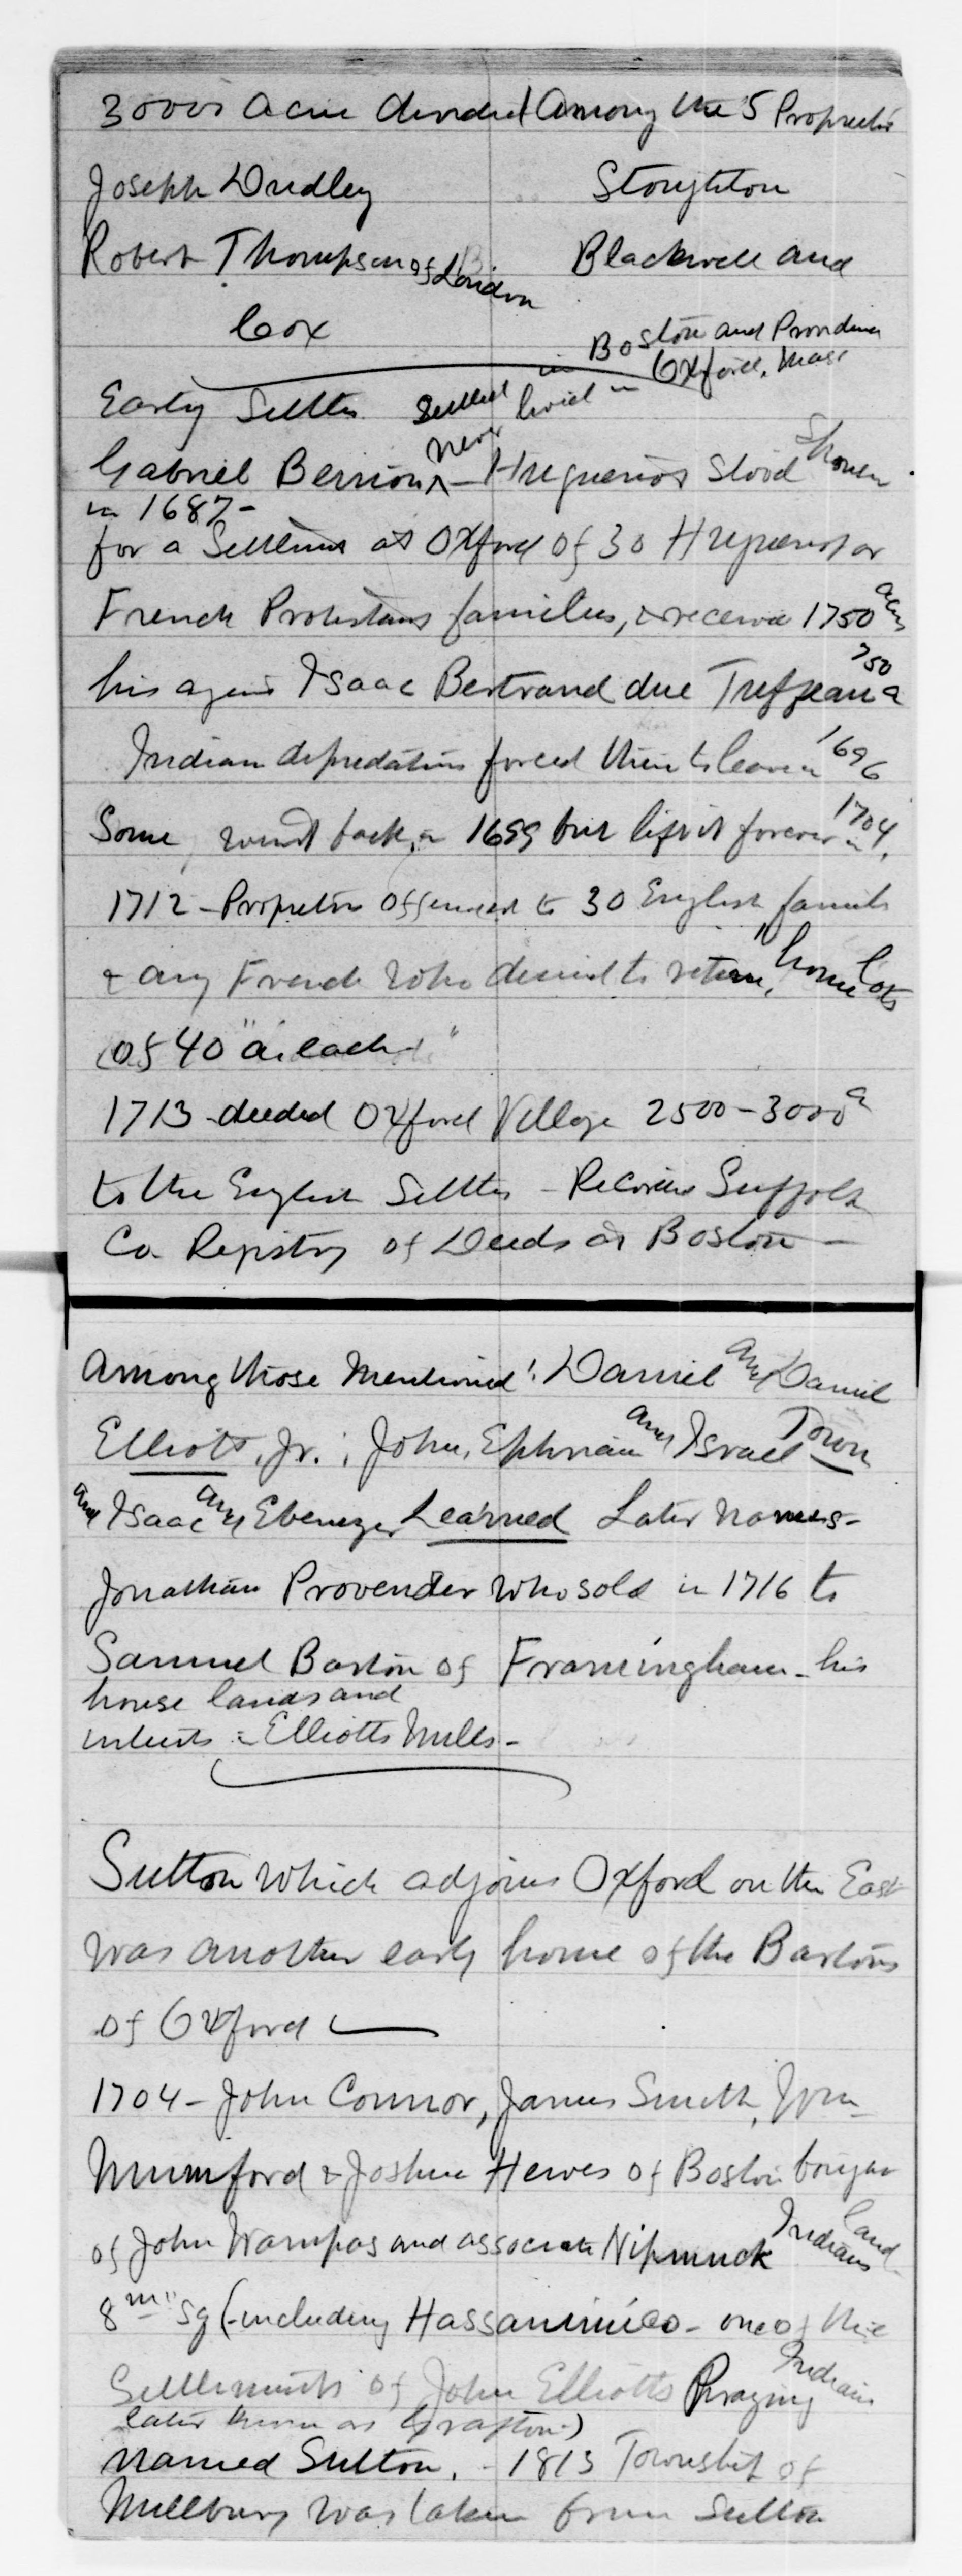 30000 acre divided among the 5 Proprietrs
Joseph Dudley Stoughton
Robert Thompson of London Blackwell and
Cox
Boston and Providence
in Oxford, Mass
Early Settlers Settled lived in
never
Gabriel Bernon - Huguenot Stood
in 1687 -
for a Settlement at Oxford of 30 Huguenot or
French Protestant families, & received 1750 acres
750
his agent Isaac Bertrand due Tuffeau a
Indian depredations forced them to leave in 1696
Some went back in 1699 but left it forever in 1704.
1712 - Proprietors offered to 30 English families
& any French who desired to return, "home lots
of 40 " a. each "
1713 - deeded Oxford Village 2500 - 3000 a
to the English Settlers - Records Suffolk
Co. Registry of Deeds at Boston -
Among those mentioned: Daniel and Daniel
Elliott, Jr.; John, Ephriam and Israel Town
and Isaac and Ebenezer Learned Later names -
Jonathan Provender who sold in 1716 to
Samuel Barton of Framingham - his
house lands and
interests in Elliotts Mills -
Sutton which adjoins Oxford on the East
was another early home of the Bartons
of Oxford
1704 - John Connor, James Smith, Wm
Mumford & Joshua Hewes of Boston bought
land
of John Wampas and associate Nipmuck Indians
8 m " sq (-including Hassanimico - one of the
Settlements of John Elliotts Praying Indians
later known as Grafton -)
named Sutton. - 1813 Township of
Millbury was taken from Sutton